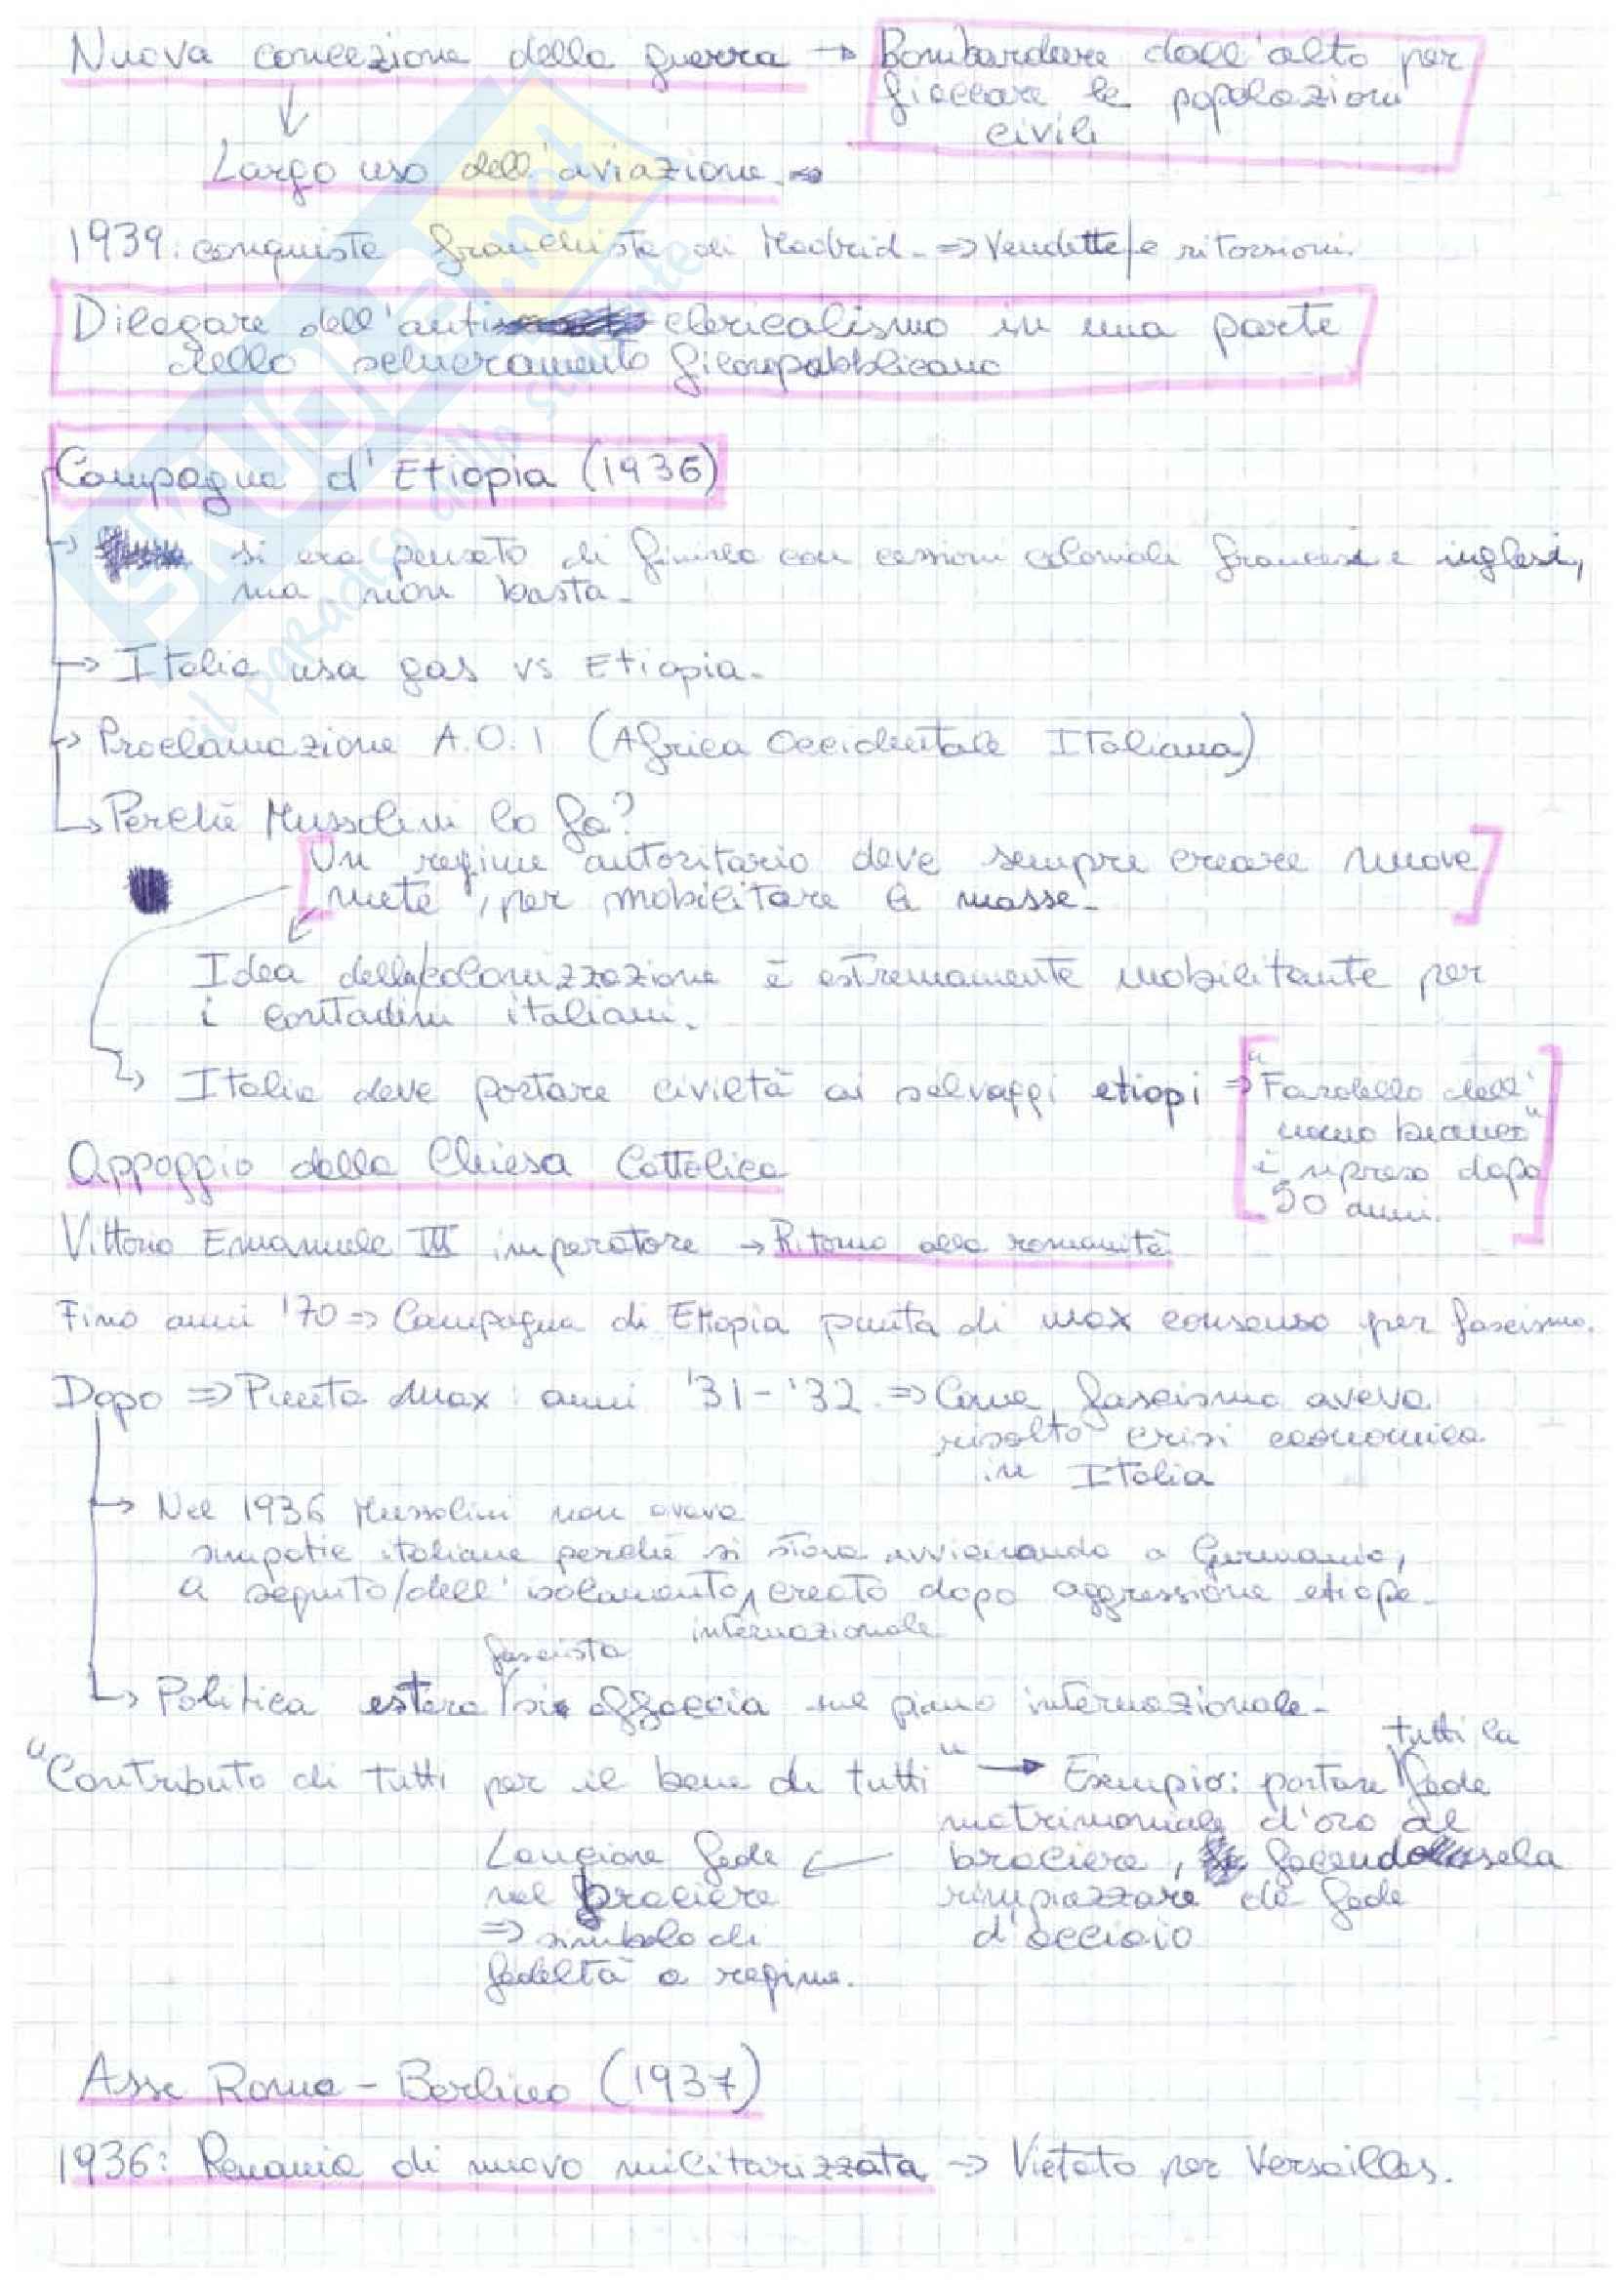 Nuova concezione della guerra → Bombardare dall'alto per
fiaccare le popolazioni
civili
Largo uso dell'aviazione. ⇒
1939: conquista franchista di Madrid. ⇒ Vendette e ritorsioni.
Dilagare dell'anti-clericalismo in una parte
dello schieramento filorepubblicano
Campagna d'Etiopia (1936)
→ si era pensato di finirla con cessioni coloniali francesi e inglesi,
ma non basta.
→ Italia usa gas vs Etiopia.
→ Proclamazione A.O.I (Africa Occidentale Italiana)
→ Perché Mussolini lo fa?
Un regime autoritario deve sempre creare nuove
mete, per mobilitare le masse.
Idea della colonizzazione è estremamente mobilitante per
i contadini italiani.
→ Italia deve portare civiltà ai selvaggi etiopi ⇒ "Fardello dell'
uomo bianco"
è ripreso dopo
50 anni.
Appoggio della Chiesa Cattolica
Vittorio Emanuele III imperatore → Ritorno alla romanità
Fino anni '70 ⇒ Campagna di Etiopia punta di max consenso per fascismo.
Dopo ⇒ Punta max: anni '31-'32 ⇒ Come fascismo aveva
risolto crisi economica
in Italia
→ Nel 1936 Mussolini non aveva
simpatie italiane perché si stava avvicinando a Germania,
a seguito dell'isolamento creato dopo aggressione etiope.
internazionale
fascista
→ Politica estera si affaccia sul piano internazionale.
tutti la
"Contributo di tutti per il bene di tutti" → Esempio: portare fede
matrimoniale d'oro al
Lancione fede ← braciere, facendosela
nel braciere rimpiazzare da fede
⇒ simbolo di d'acciaio
fedeltà a regime.
Asse Roma-Berlino (1937)
1936: Renania di nuovo militarizzata → Vietato per Versailles.
SKUOLA.net
il paradiso dello studente